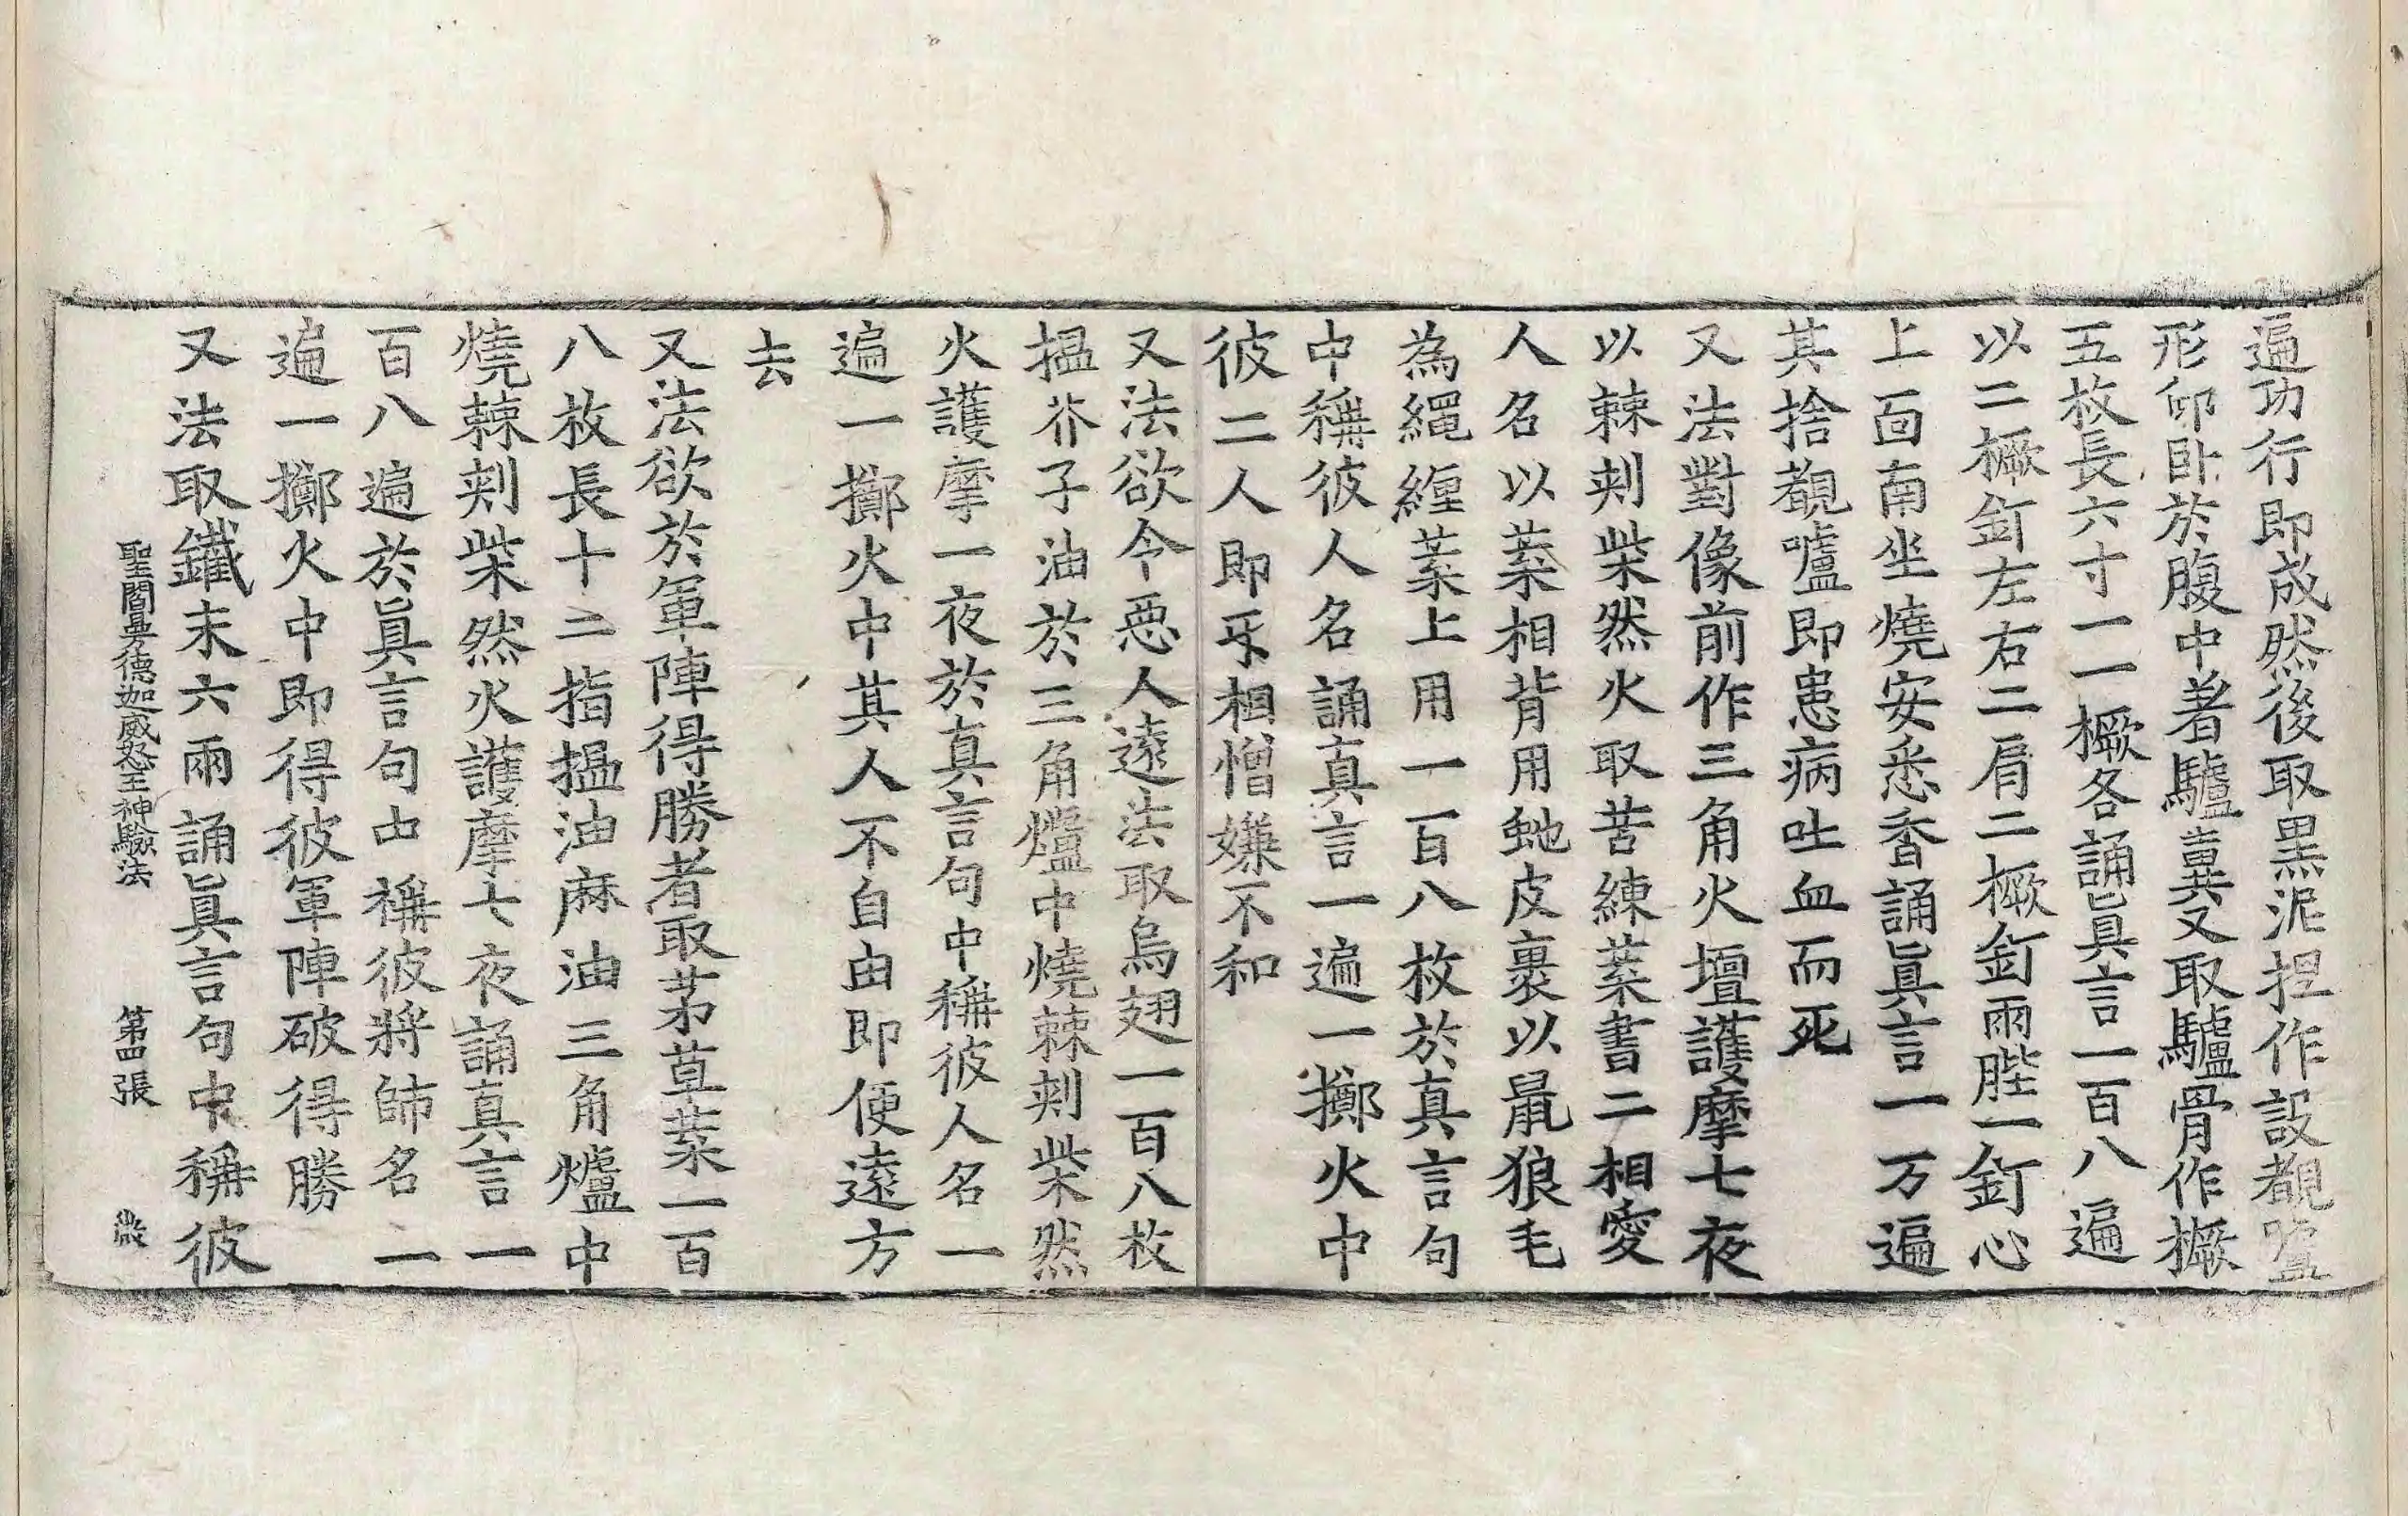 遍功行即成然後取黒泥捏作設覩嚧
形仰卧於腹中著驢糞又取驢骨作橛
五枚長六寸一一橛各誦眞言一百八遍
以二橛釘左右二肩二橛釘兩䏶一釘心
上面南坐燒安悉香誦眞言一万遍
其捨覩嚧即患病吐血而死
又法對像前作三角火壇護摩七夜
以棘刾柴然火取苦練葉書二相愛
人名以葉相背用虵皮裹以鼠狼毛
為繩纏葉上用一百八枚於真言句
中稱彼人名誦真言一遍一擲火中
彼二人即㸦相憎嫌不和
又法欲令惡人遠去取烏翅一百八枚
搵芥子油於三角爐中燒棘刾柴然
火護摩一夜於真言句中稱彼人名一
遍一擲火中其人不自由即便遠方
去
又法欲於軍陣得勝者取茅草葉一百
八枚長十二指搵油麻油三角爐中
燒棘刾柴然火護摩七夜誦真言一
百八遍於眞言句中稱彼將師名一
遍一擲火中即得彼軍陣破得勝
又法取鐵末六兩誦眞言句中稱彼
聖閻曼德迦威怒王神驗法　第四張